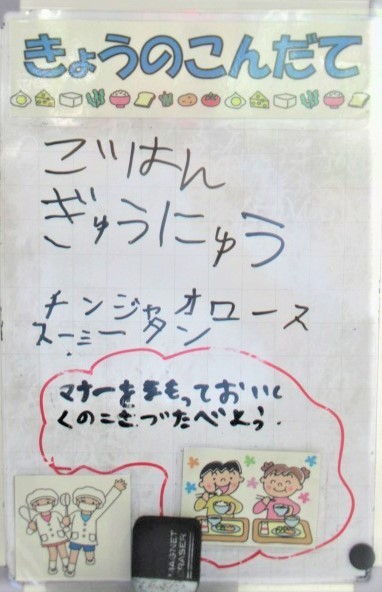 きょうのこんだて
ごはん
ぎゅうにゅう
チンジャオロース
スーミータン
マナーをまもっておいし
くのこさづたべよう.
MAGNET
ERASER